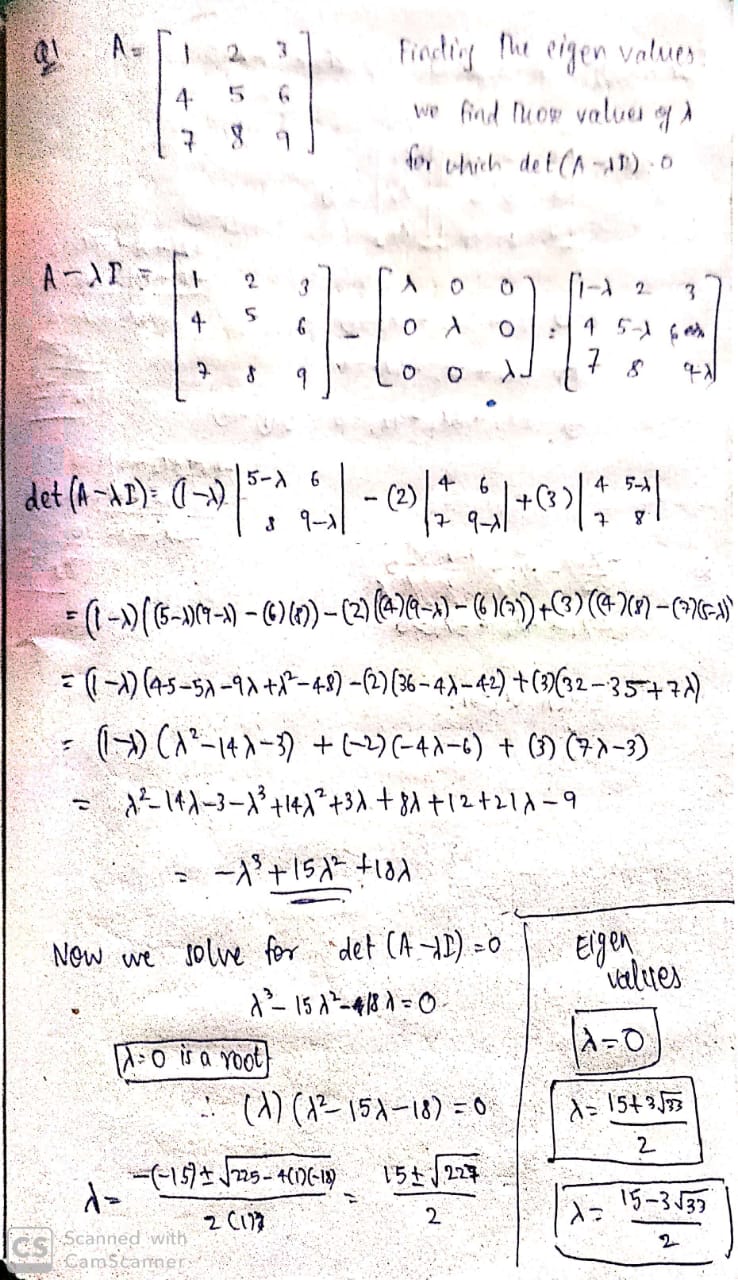 Q1 A = [ 1 2 3 Finding the eigen values
4 5 6 we find those values of λ
7 8 9 ] for which det(A-λI) = 0
A-λI = [ 1 2 3 ; 4 5 6 ; 7 8 9 ] - [ λ 0 0 ; 0 λ 0 ; 0 0 λ ] = [ 1-λ 2 3 ; 4 5-λ 6 ; 7 8 9-λ ]
det (A-λI) = (1-λ) | 5-λ 6 ; 8 9-λ | - (2) | 4 6 ; 7 9-λ | + (3) | 4 5-λ ; 7 8 |
= (1-λ) ((5-λ)(9-λ) - (6)(8)) - (2) ((4)(9-λ) - (6)(7)) + (3) ((4)(8) - (7)(5-λ))
= (1-λ) (45-5λ-9λ+λ²-48) - (2) (36-4λ-42) + (3)(32-35+7λ)
= (1-λ) (λ²-14λ-3) + (-2)(-4λ-6) + (3) (7λ-3)
= λ²-14λ-3-λ³+14λ²+3λ+8λ+12+21λ-9
= -λ³+15λ²+18λ
Now we solve for det (A-λI) = 0
λ³-15λ²-18λ = 0
λ=0 is a root
∴ (λ) (λ²-15λ-18) = 0
λ = -(-15) ± √225-4(1)(-18) / 2(1) = 15 ± √297 / 2
Eigen
values
λ=0
λ = 15+3√33 / 2
λ = 15-3√33 / 2
CS Scanned with
CamScanner